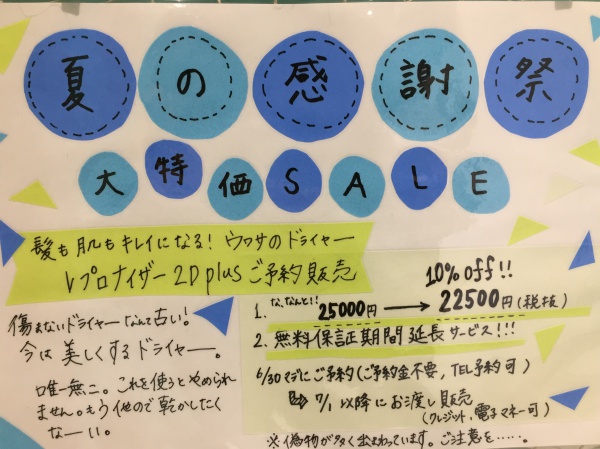 夏の感謝祭
大特価SALE
髪も肌もキレイになる! ウワサのドライヤー
レプロナイザー 2D plus ご予約販売
傷まないドライヤーなんて古い!
今は美しくするドライヤー。
唯一無二。これを使うとやめられ
ません。もう他ので乾かしたく
なーい。
10% off!!
1. な、なんと!! 25000円 → 22500円(税抜)
2. 無料保証期間延長サービス!!!
6/30マデにご予約(ご予約金不要, TEL予約可)
⇨ 7/1 以降にお渡し販売
(クレジット, 電子マネー可)
※偽物が多く出まわっています。ご注意を‥‥。